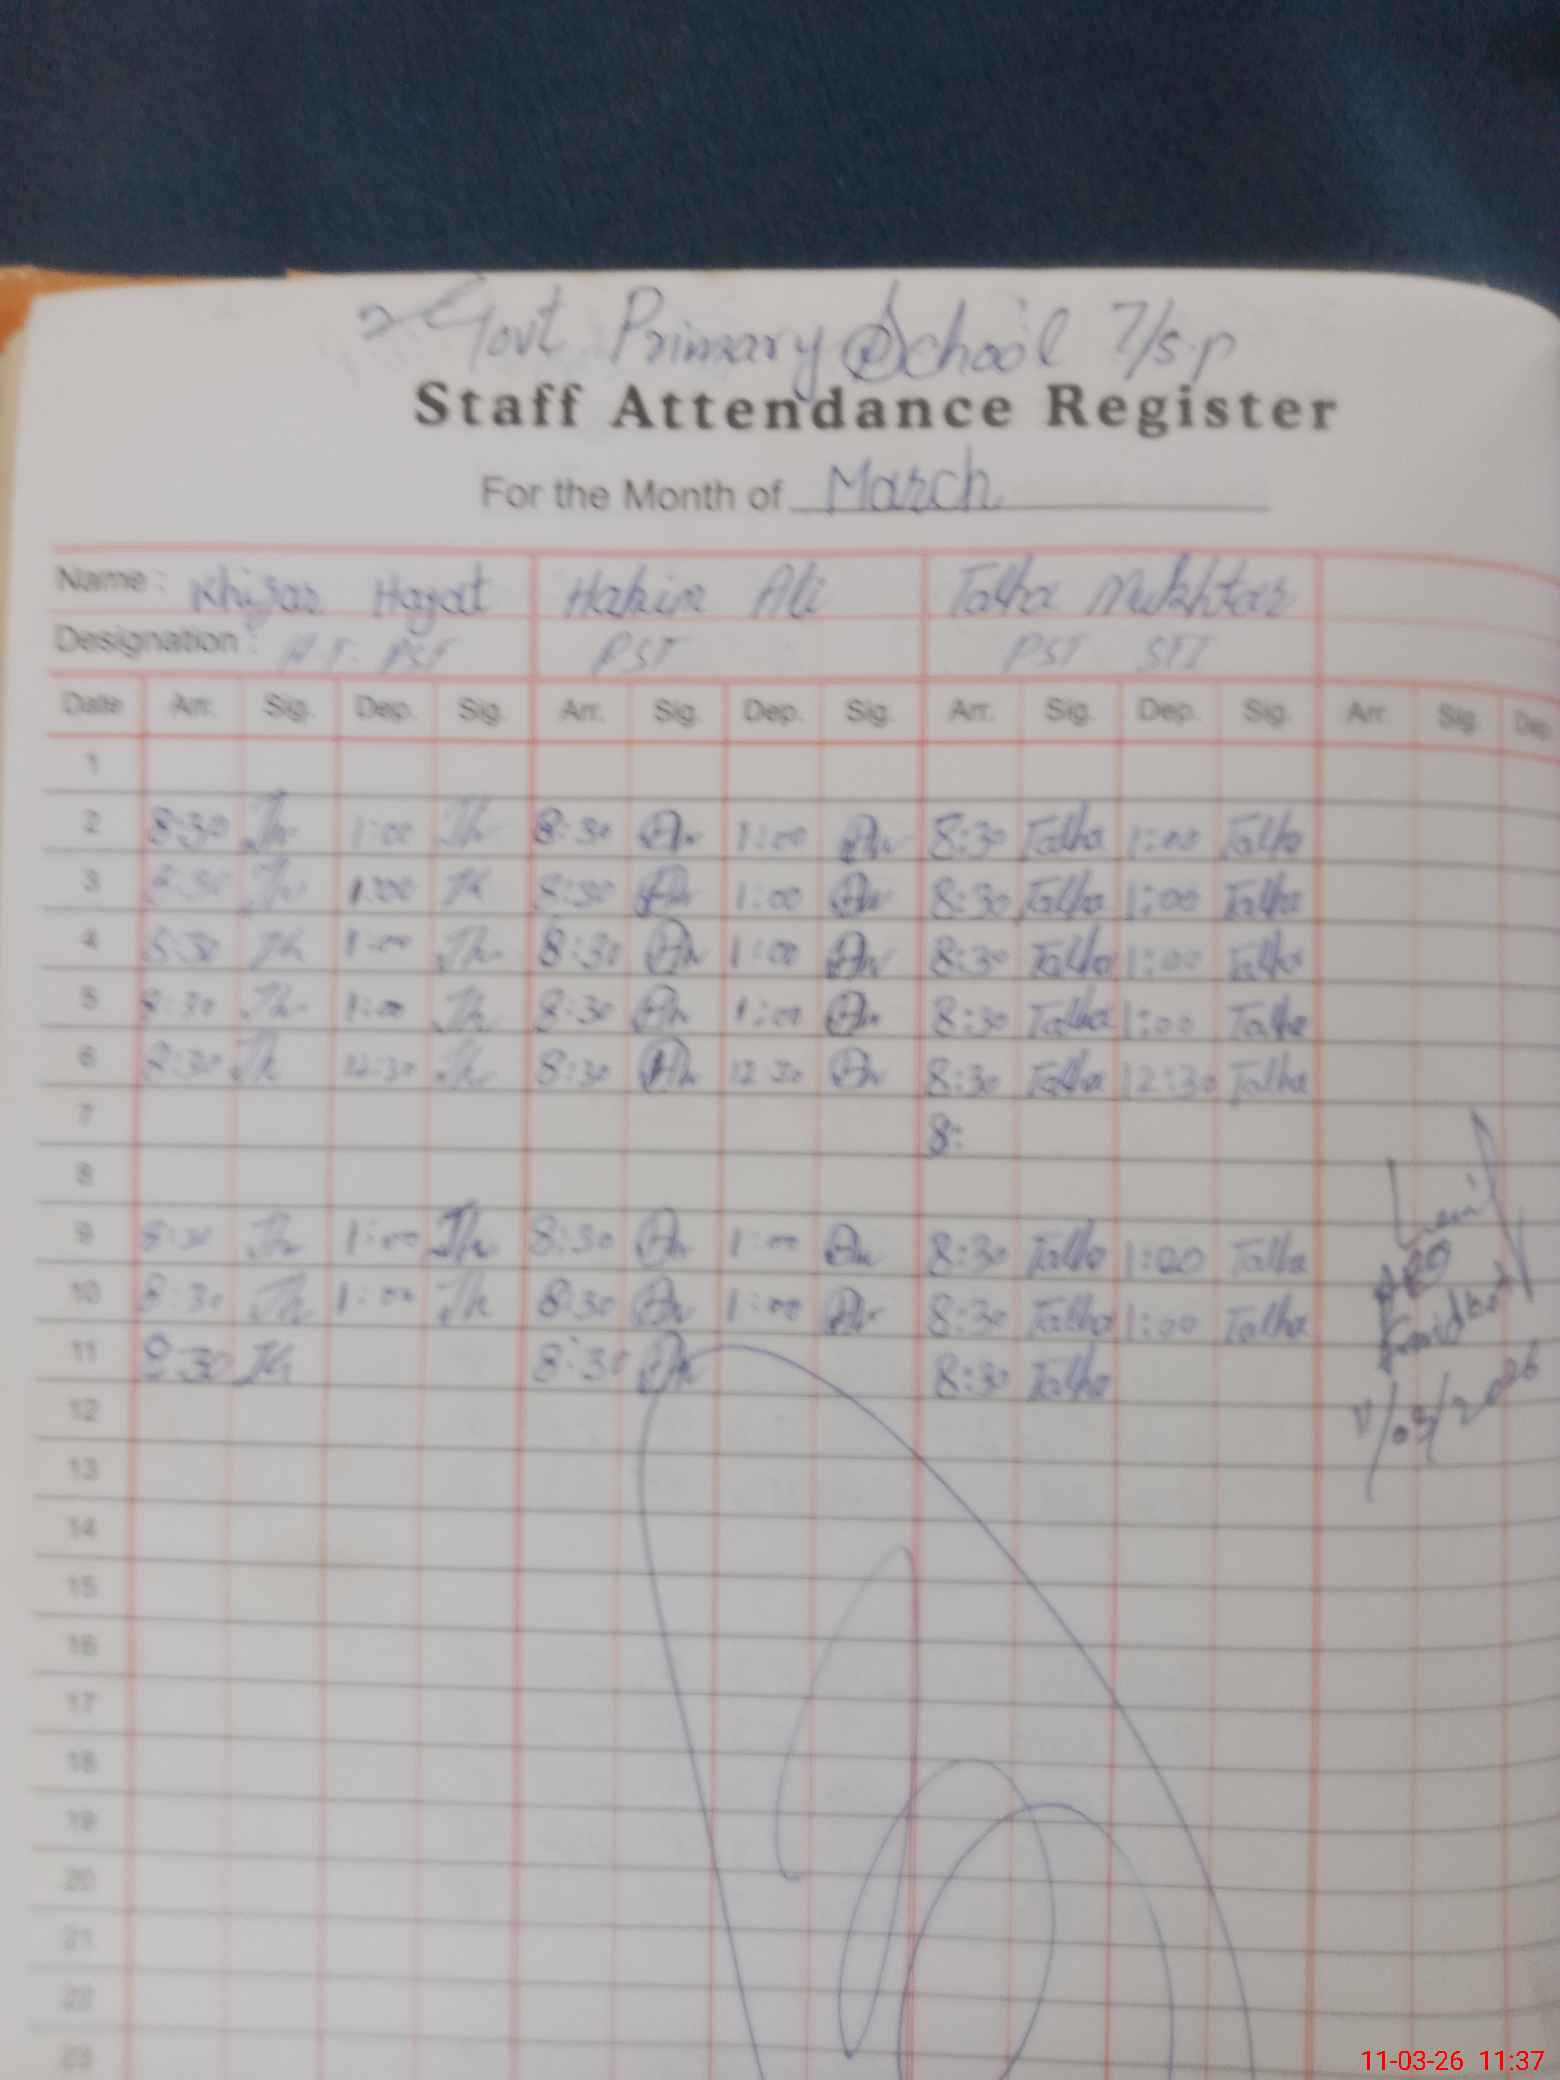 Govt Primary School 7/s.p
Staff Attendance Register
For the Month of March
Name: Khizar Hayat Hakim Ali Talha Mukhtar
Designation: PST PST PST STI
Date Arr. Sig. Dep. Sig. Arr. Sig. Dep. Sig. Arr. Sig. Dep. Sig. Arr. Sig. Dep.
1
2 8:30 1:00 8:30 1:00 8:30 Talha 1:00 Talha
3 8:30 1:00 8:30 1:00 8:30 Talha 1:00 Talha
4 8:30 1:00 8:30 1:00 8:30 Talha 1:00 Talha
5 8:30 1:00 8:30 1:00 8:30 Talha 1:00 Talha
6 8:30 12:30 8:30 12:30 8:30 Talha 12:30 Talha
7 8:
8
9 8:30 1:00 8:30 1:00 8:30 Talha 1:00 Talha
10 8:30 1:00 8:30 1:00 8:30 Talha 1:00 Talha
11 8:30 8:30 8:30 Talha
11/03/2026
12
13
14
15
16
17
18
19
20
21
22
23
11-03-26 11:37